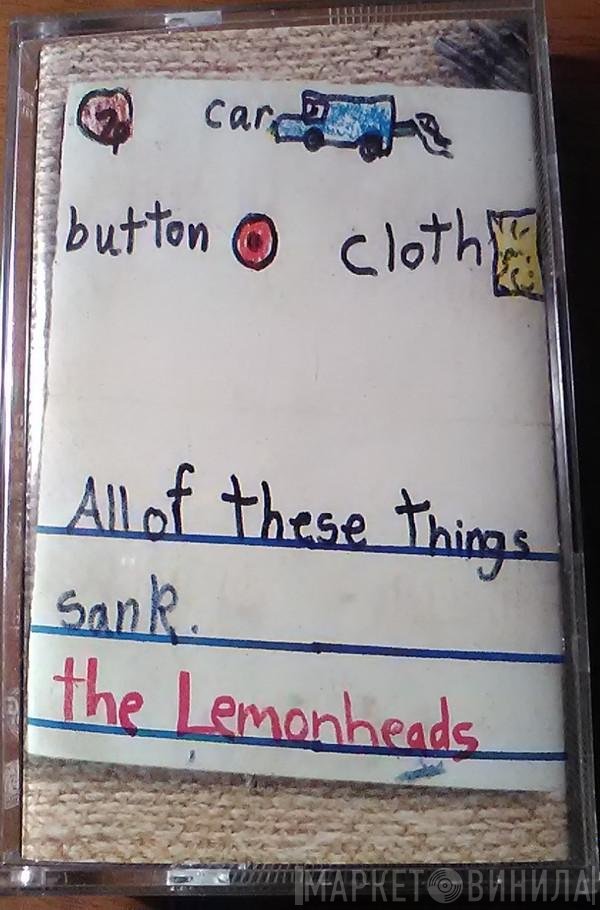 2p car
button cloth
All of these things
sank.
the Lemonheads
МАРКЕТ ВИНИЛА